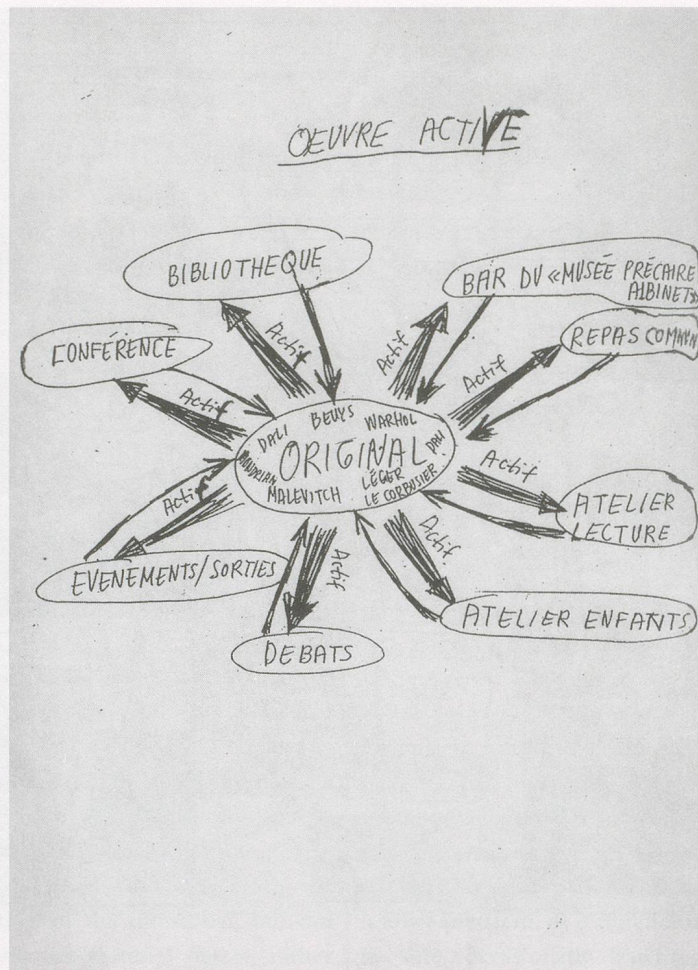 OEUVRE ACTIVE
BIBLIOTHEQUE
BAR DU «MUSÉE PRÉCAIRE
ALBINET»
CONFÉRENCE
REPAS COMMUN
Actif
Actif
Actif
Actif
DALI
BEUYS
WARHOL
DALI
ORIGINAL
MONDRIAN
MALEVITCH
LÉGER
LE CORBUSIER
Actif
Actif
ATELIER
LECTURE
Actif
Actif
EVENEMENTS/SORTIES
ATELIER ENFANTS
DEBATS